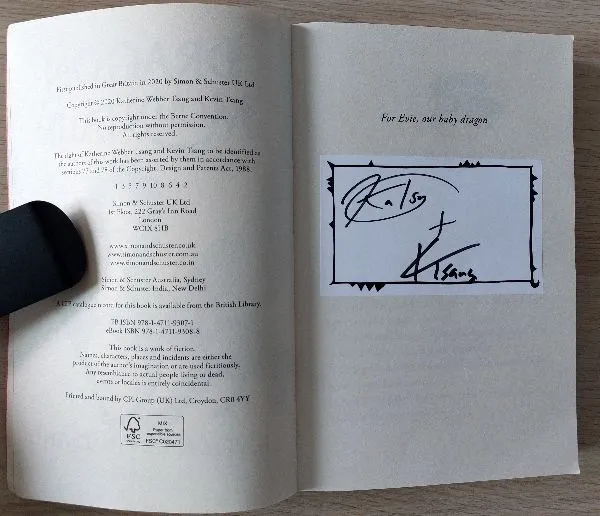 First published in Great Britain in 2020 by Simon & Schuster UK Ltd
Copyright © 2020 Katherine Webber Tsang and Kevin Tsang
This book is copyright under the Berne Convention.
No reproduction without permission.
All rights reserved.
The right of Katherine Webber Tsang and Kevin Tsang to be identified as
the authors of this work has been asserted by them in accordance with
sections 77 and 78 of the Copyright, Design and Patents Act, 1988.
1 3 5 7 9 10 8 6 4 2
Simon & Schuster UK Ltd
1st Floor, 222 Gray's Inn Road
London
WC1X 8HB
www.simonandschuster.co.uk
www.simonandschuster.com.au
www.simonandschuster.co.in
Simon & Schuster Australia, Sydney
Simon & Schuster India, New Delhi
A CIP catalogue record for this book is available from the British Library.
PB ISBN 978-1-4711-9307-1
eBook ISBN 978-1-4711-9308-8
This book is a work of fiction.
Names, characters, places and incidents are either the
product of the author's imagination or are used fictitiously.
Any resemblance to actual people living or dead,
events or locales is entirely coincidental.
Printed and bound by CPI Group (UK) Ltd, Croydon, CR0 4YY
FSC
MIX
Paper from
responsible sources
FSC® C020471
For Evie, our baby dragon
+
KTsang